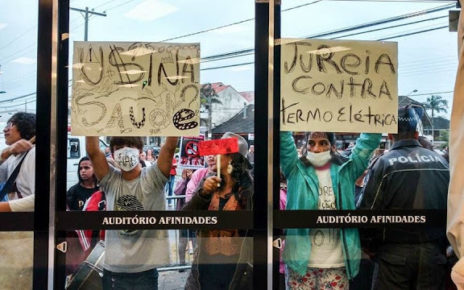 U$INA
SAÚDE?
JUREIA
CONTRA
TERMOELÉTRICA
AUDITÓRIO AFINIDADES
AUDITÓRIO AFINIDADES
POLÍCIA